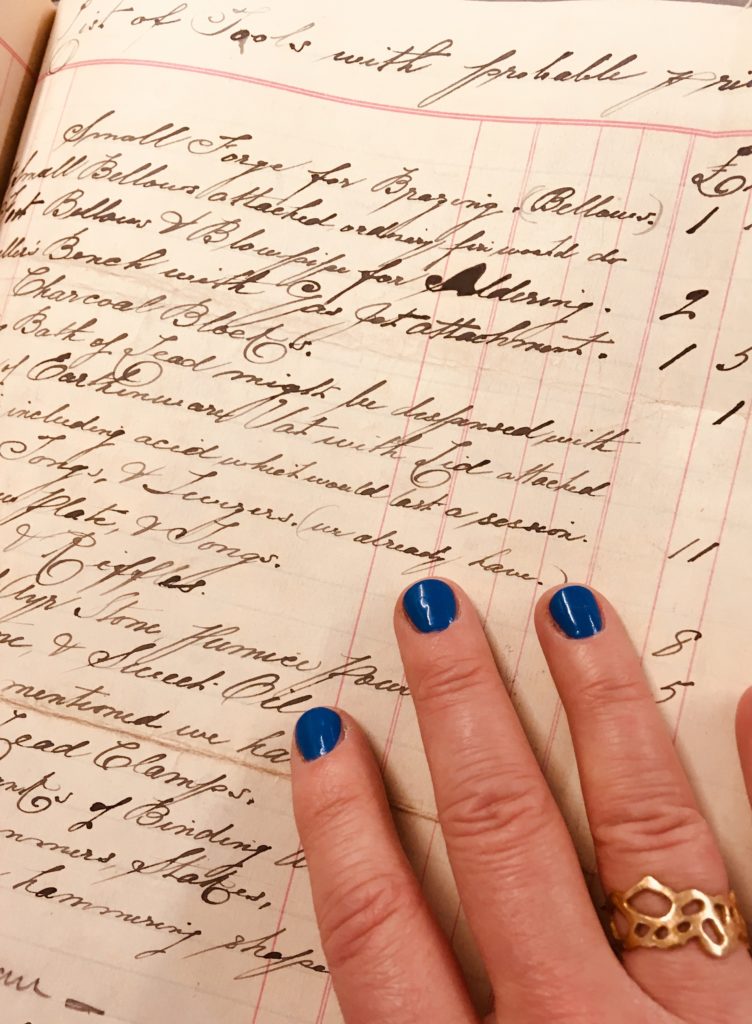 List of Tools with probable
Small Forge for Brazing. (Bellows.) £ 1
Small Bellows attached ordinary fire would do
Bellows & Blowpipe for Soldering. 2
Bench with Gas Jet attachment. 1 5
Charcoal Blocks. 1
Bath of Lead might be dispensed with
of Earthenware Vat with Lid attached
including acid which would last a session. 11
Tongs, & Twezers. (we already have.)
Plate, & Tongs.
& Riffles. 8
Ayr Stone Pumice 5
& Sweet Oil
mentioned we
Lead Clamps.
of Binding
Stakes,
hammering